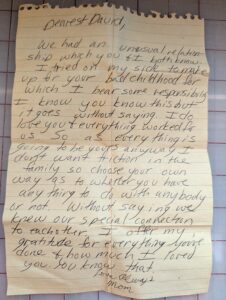 Dearest David,
We had an unusual relation-
ship which you & I both know.
I tried on my side to make
up for your bad childhood for
which I bear some responsibility
I know you know this but
it goes without saying I do
love you & everything worked for
us. So as everything is
going to be yours anyway I
don't want friction in the
family so choose your own
way as to whether you have
any thing to do with anybody
or not. Without saying we
knew our special connection
to each other. I offer my
gratitude for everything you've
done & how much I loved
you. You know that
Love always
Mom